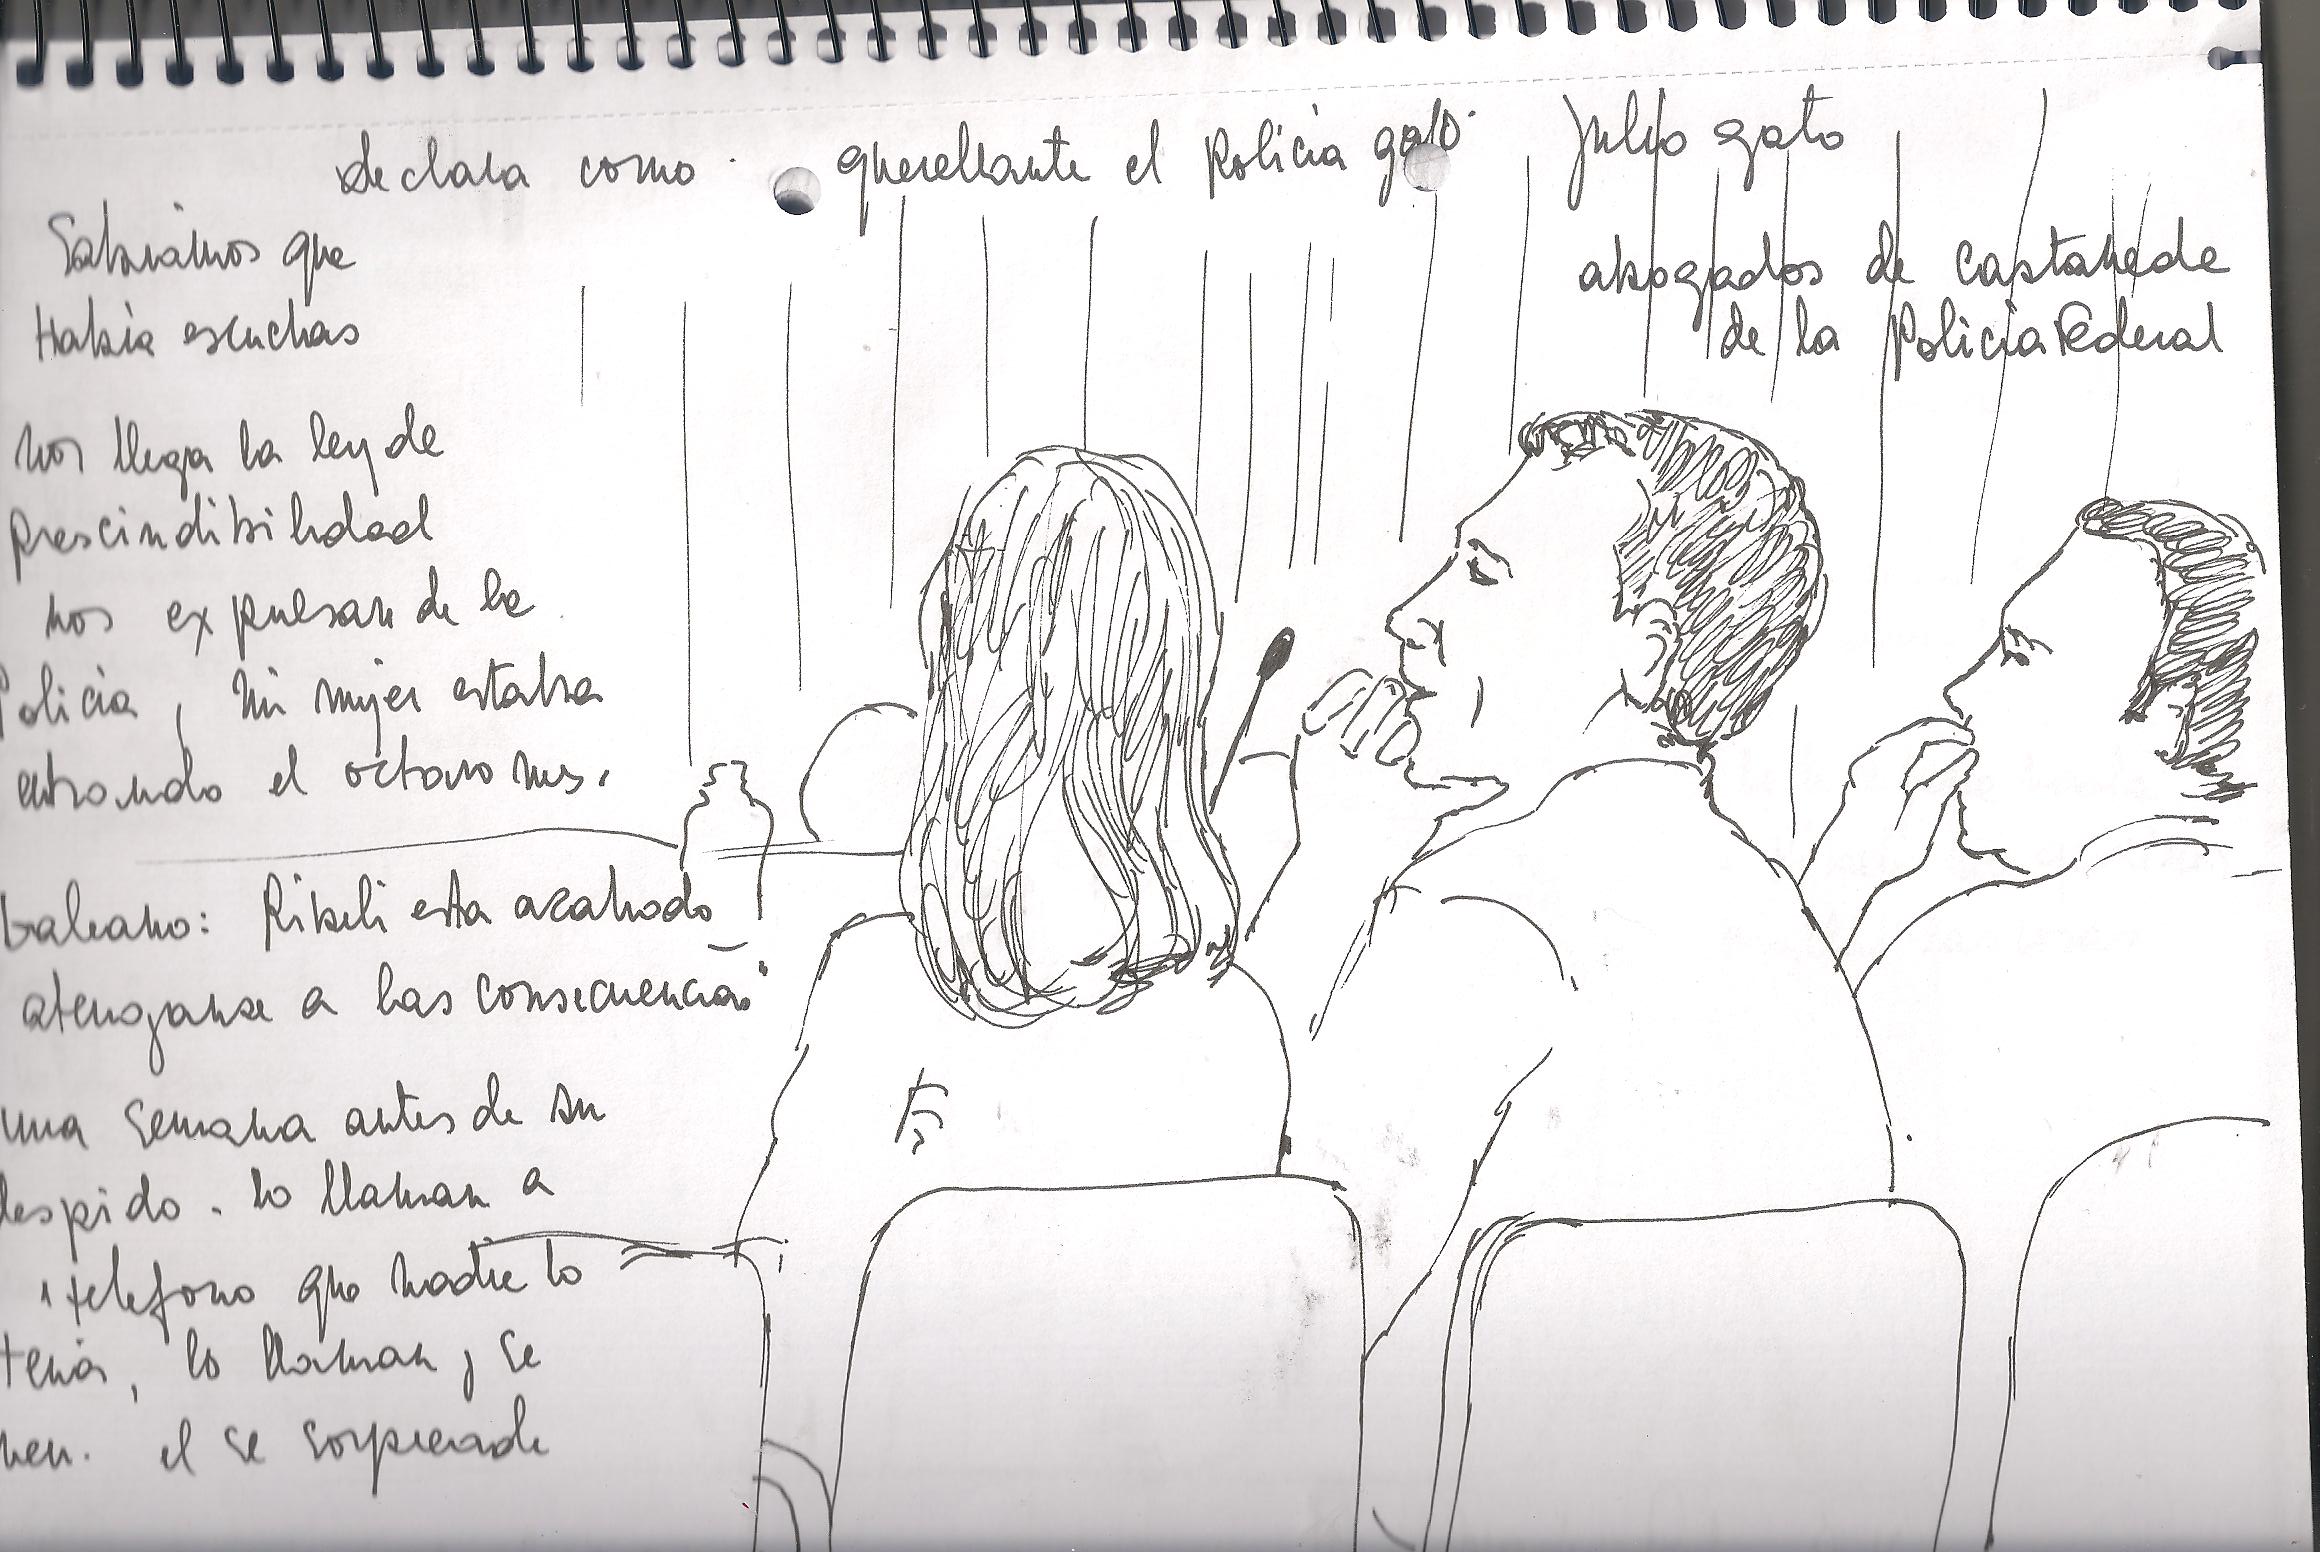 declara como querellante el Policia gato. Julio gato
abogados de Castañede
de la Policia Federal
Sabiamos que
Había escuchas
nos llega la ley de
prescindibilidad
nos expulsan de la
Policia, Mi mujer estaba
entrando el octavo mes.
Galeano: Ribeli esta acabado
atenganse a las consecuencias"
una semana antes de su
despido. lo llaman a
1 telefono que nadie lo
tenia, lo llaman, se
el se sorprende